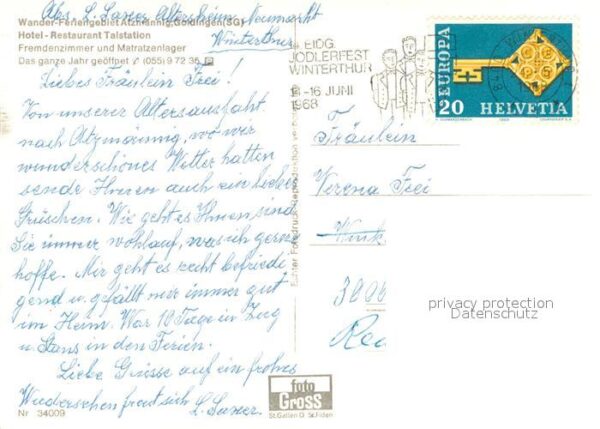 Abs. L. Saxer Altersheim Neumarkt
Winterthur
Wander-Feriengebiet Atzmännig, Goldingen (SG)
Hotel - Restaurant Talstation
Fremdenzimmer und Matratzenlager
Das ganze Jahr geöffnet ✆ (055) 9 72 35 P
Liebes Fräulein Frei!
Von unserer Altersausfahrt
nach Atzmännig, wo wir
wunderschönes Wetter hatten
sende Ihnen auch ein liebes
Grüschen. Wie geht es Ihnen, sind
Sie immer wohlauf, was ich gerne
hoffe. Mir geht es recht befriedi,
gend u. gefällt mir immer gut
im Heim. War 10 Tage in Zug
u. Stans in den Ferien.
Liebe Grüsse auf ein frohes
Wiedersehen freut sich L. Saxer.
Nr 34009
foto
Gross
St. Gallen O St. Fiden
EIDG.
JODLERFEST
WINTERTHUR
-16 JUNI
1968
EUROPA
20 HELVETIA
Fräulein
Verena Frei
privacy protection
Datenschutz